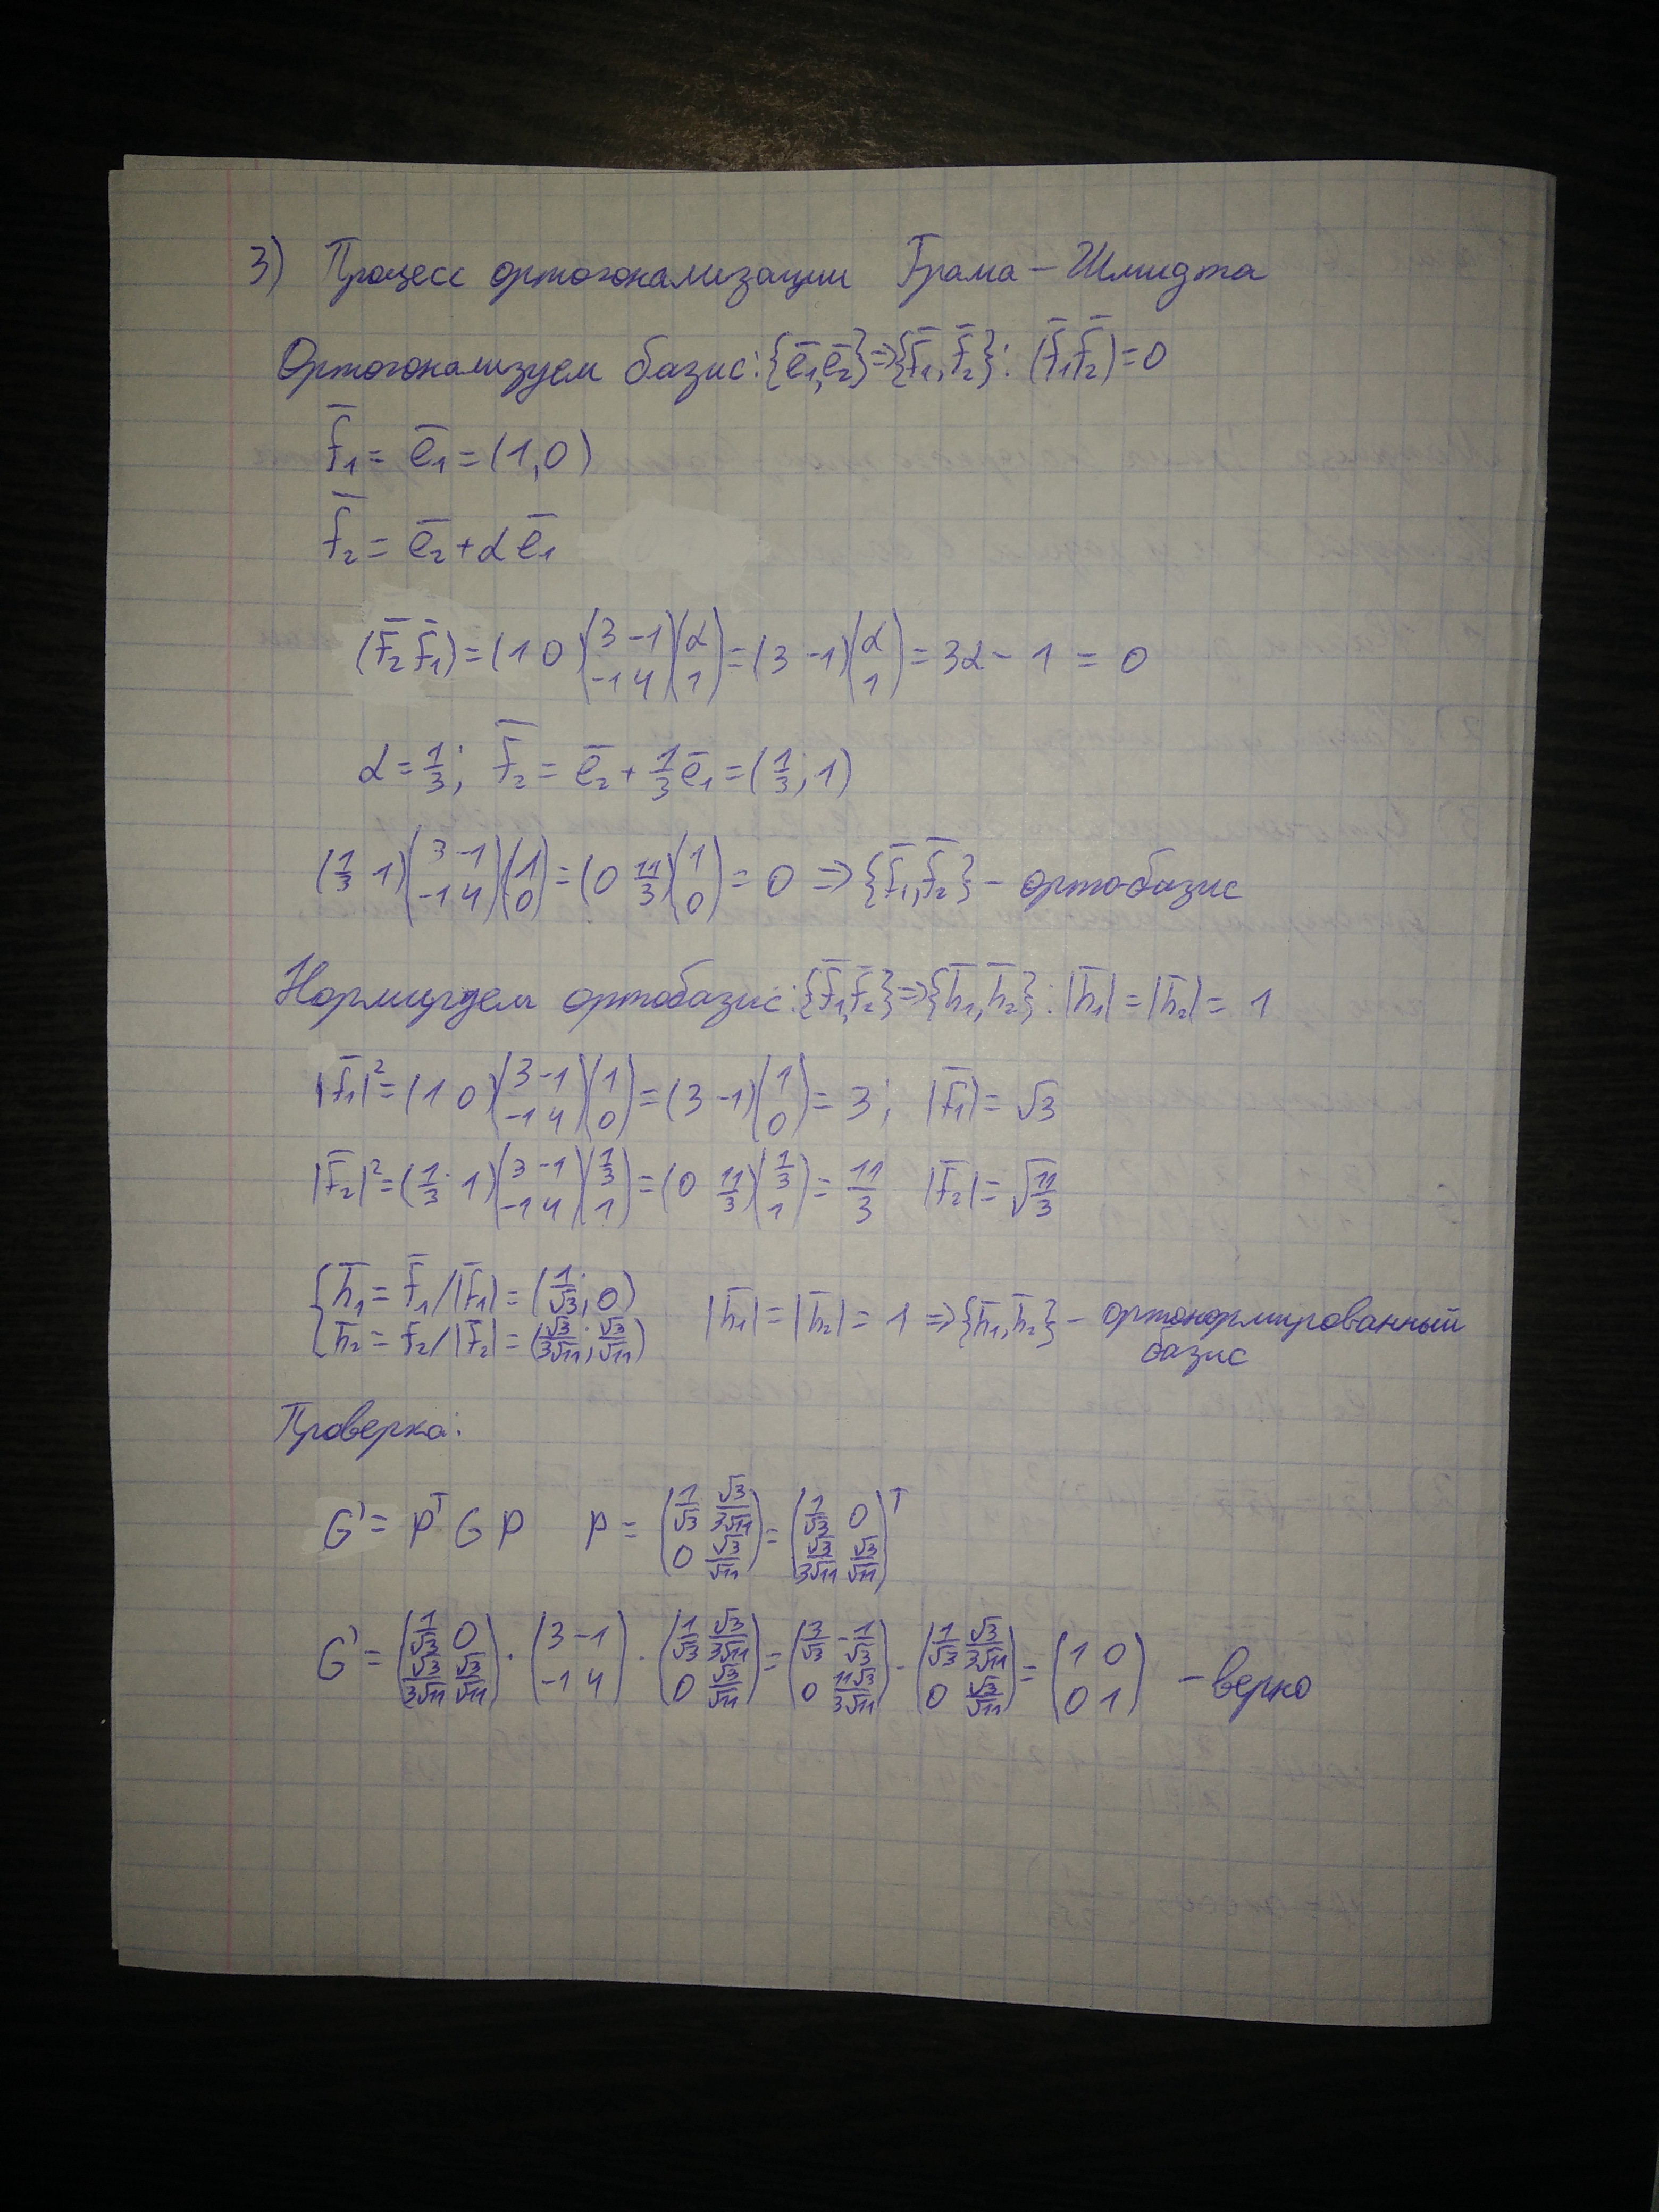 3) Процесс ортогонализации Грама – Шмидта
Ортогонализуем базис: {e̅₁, e̅₂} ⇒ {f̅₁, f̅₂} : (f̅₁ f̅₂) = 0
f̅₁ = e̅₁ = (1, 0)
f̅₂ = e̅₂ + α e̅₁
(f̅₂ f̅₁) = (1 0)(3 -1; -1 4)(α; 1) = (3 -1)(α; 1) = 3α - 1 = 0
α = 1/3; f̅₂ = e̅₂ + 1/3 e̅₁ = (1/3; 1)
(1/3 1)(3 -1; -1 4)(1; 0) = (0 11/3)(1; 0) = 0 ⇒ {f̅₁, f̅₂} – ортобазис
Нормируем ортобазис: {f̅₁, f̅₂} ⇒ {h̅₁, h̅₂} : |h̅₁| = |h̅₂| = 1
|f̅₁|² = (1 0)(3 -1; -1 4)(1; 0) = (3 -1)(1; 0) = 3; |f̅₁| = √3
|f̅₂|² = (1/3 1)(3 -1; -1 4)(1/3; 1) = (0 11/3)(1/3; 1) = 11/3 |f̅₂| = √(11/3)
{h̅₁ = f̅₁/|f̅₁| = (1/√3; 0)
h̅₂ = f₂/|f̅₂| = (√3/3√11; √3/√11) |h̅₁| = |h̅₂| = 1 ⇒ {h̅₁, h̅₂} – ортонормированный
базис
Проверка:
G' = Pᵀ G P P = (1/√3 √3/3√11; 0 √3/√11) = (1/√3 0; √3/3√11 √3/√11)ᵀ
G' = (1/√3 0; √3/3√11 √3/√11) · (3 -1; -1 4) · (1/√3 √3/3√11; 0 √3/√11) = (3/√3 -1/√3; 0 11√3/3√11) · (1/√3 √3/3√11; 0 √3/√11) = (1 0; 0 1) – верно